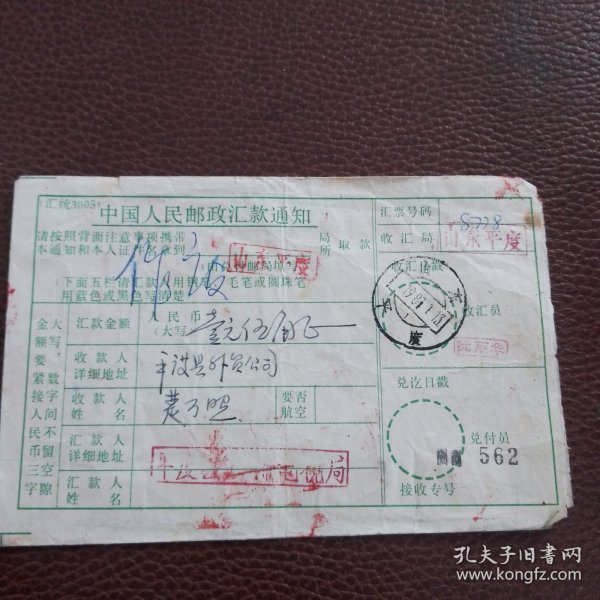 (汇统3005)
中国人民邮政汇款通知
请按照背面注意事项携带
本通知和本人证件各来到
局
所
取款
作废
山东平度
(下面五栏请汇款人用钢笔、毛笔或圆珠笔
用蓝色或黑色写清楚)
金额要紧接人民币三字
大写数字间不留空隙
汇款金额
人民币
(大写)
壹元伍角正
收款人
详细地址
平度县外贸公司
收款人
姓名
要否
航空
汇款人
详细地址
汇款人
姓名
汇票号码
8778
收汇局
山东平度
收汇日戳
山东
平度
收汇员
兑讫日戳
兑付员
562
接收专号
孔夫子旧书网
www.kongfz.com